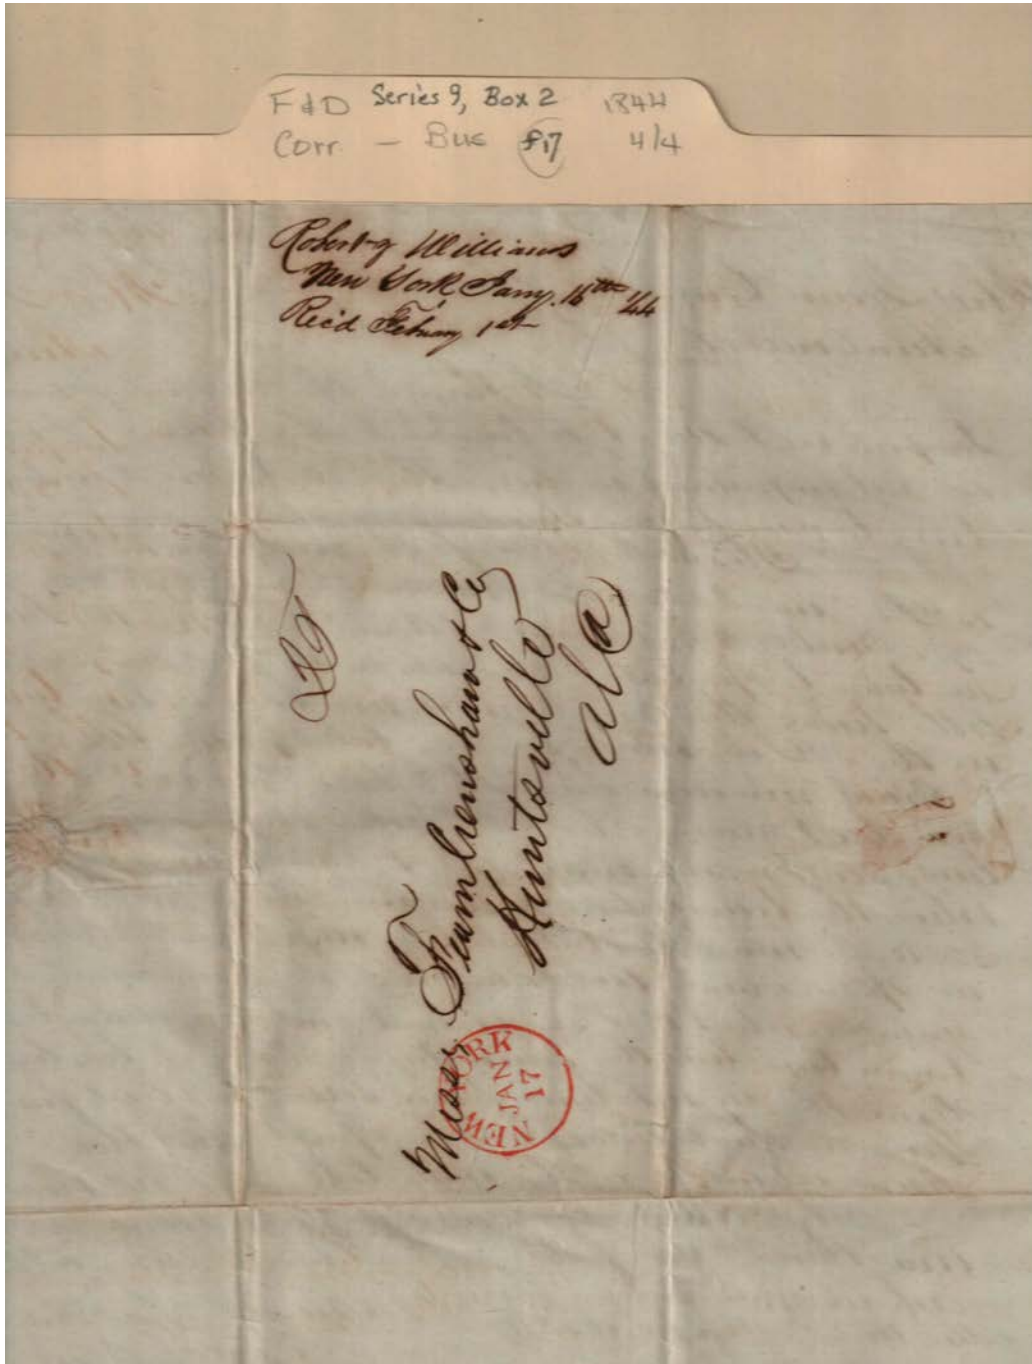 F & D Series 9, Box 2 1844
Corr. — Bus F17 4/4
Robert & Williams
New York Jany. 16th 44
Rec'd February 1st
Messrs Fearn Crenshaw & Co
Huntsville
Ala
NEW YORK
JAN
17